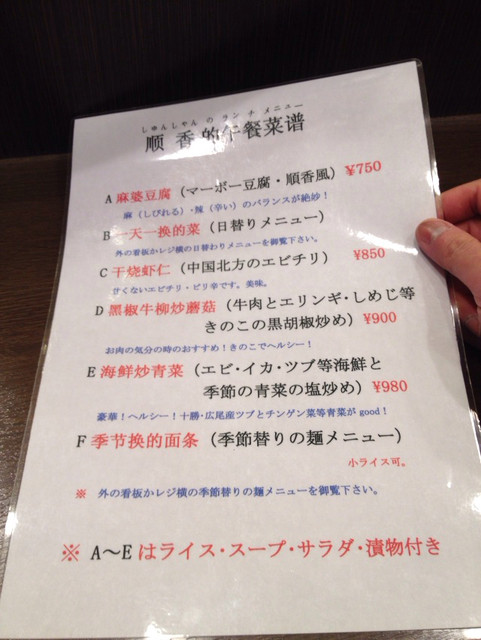 しゅんしゃん の ランチ メニュー
顺 香 的午餐菜谱
A 麻婆豆腐（マーボー豆腐・順香風）¥750
麻（しびれる）・辣（辛い）のバランスが絶妙！
B 一天一换的菜（日替りメニュー）
外の看板かレジ横の日替わりメニューを御覧下さい。
C 干烧虾仁（中国北方のエビチリ） ¥850
甘くないエビチリ・ピリ辛です。美味。
D 黑椒牛柳炒蘑菇（牛肉とエリンギ・しめじ等
きのこの黒胡椒炒め）¥900
お肉の気分の時のおすすめ！きのこでヘルシー！
E 海鲜炒青菜（エビ・イカ・ツブ等海鮮と
季節の青菜の塩炒め）¥980
豪華！ヘルシー！十勝・広尾産ツブとチンゲン菜等青菜が good！
F 季节换的面条（季節替りの麺メニュー）
小ライス可。
※ 外の看板かレジ横の季節替りの麺メニューを御覧下さい。
※ A～E はライス・スープ・サラダ・漬物付き